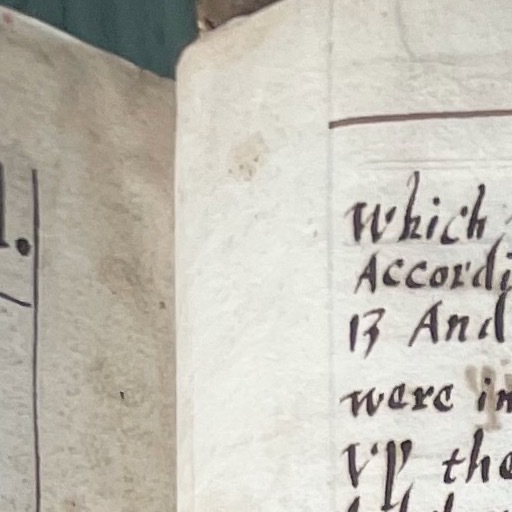 which
Accordi
13 And
were in
vp the